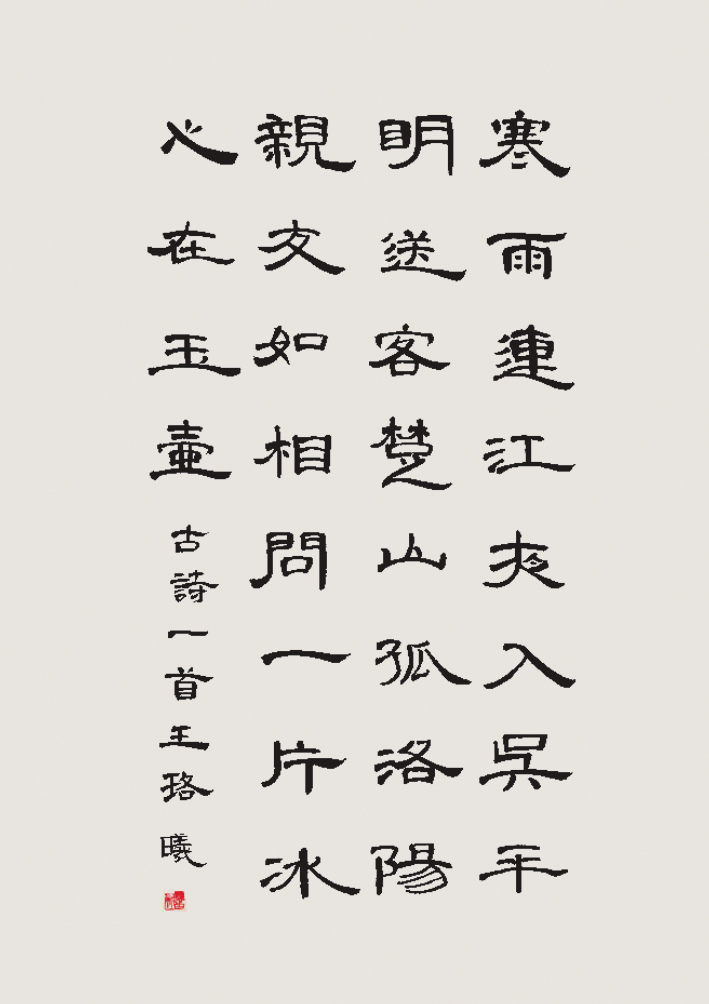 寒雨連江夜入吳平
明送客楚山孤洛陽
親友如相問一片冰
心在玉壺
古詩一首王珞曦